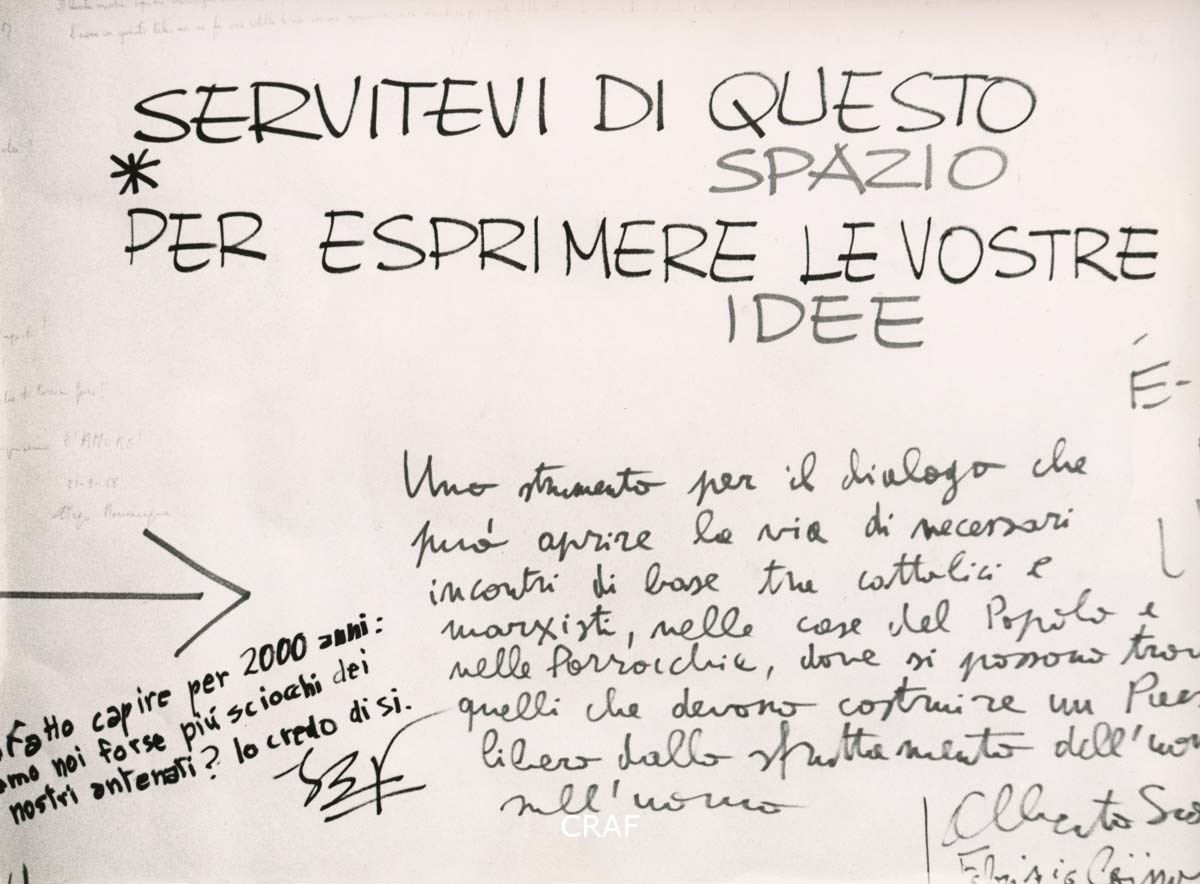 SERVITEVI DI QUESTO
SPAZIO
*
PER ESPRIMERE LE VOSTRE
IDEE
É-
Uno strumento per il dialogo che
può aprire la via di necessari
incontri di base tra cattolici e
marxisti, nelle case del Popolo e
nelle Parrocchie, dove si possono trov
quelli che devono costruire un Paes
libero dallo sfruttamento dell'uom
sull'uomo
È "AMORE"
fatto capire per 2000 anni:
amo noi forse più sciocchi dei
nostri antenati? Io credo di si.
Alberto
CRAF